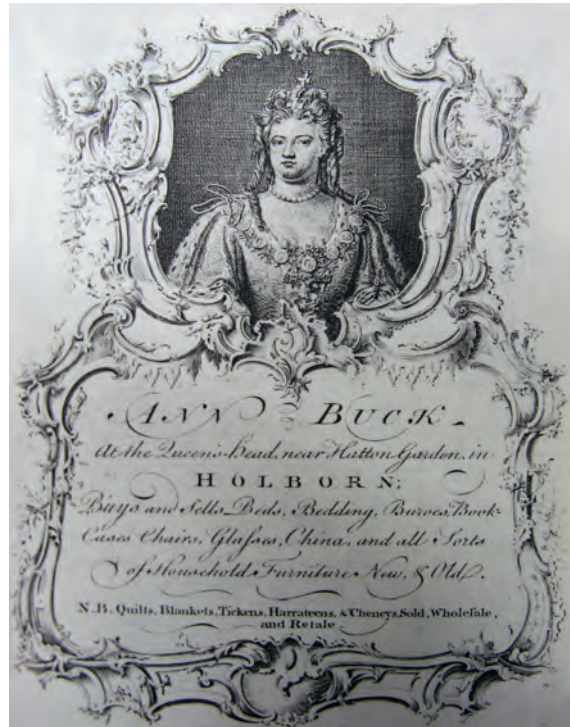 ANN BUCK
At the Queen's-Head, near Hatton Garden, in
HOLBORN;
Buys and Sells Beds, Bedding, Buroes, Book-
Cases Chairs, Glaſses, China, and all Sorts
of Household Furniture New, & Old.
N.B. Quilts, Blankets, Tickens, Harrateens, & Cheneys, Sold, Wholeſale,
and Retale.